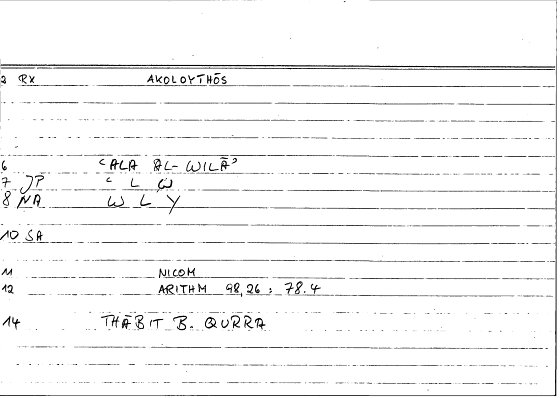 2 RX AKOLOYTHŌS
6 ‘ALA AL-WILĀ’
7 JP ‘ L W
8 NA W L Y
10 SA
11 NICOM
12 ARITHM 98,26 : 78.4
14 THĀBIT B. QURRA